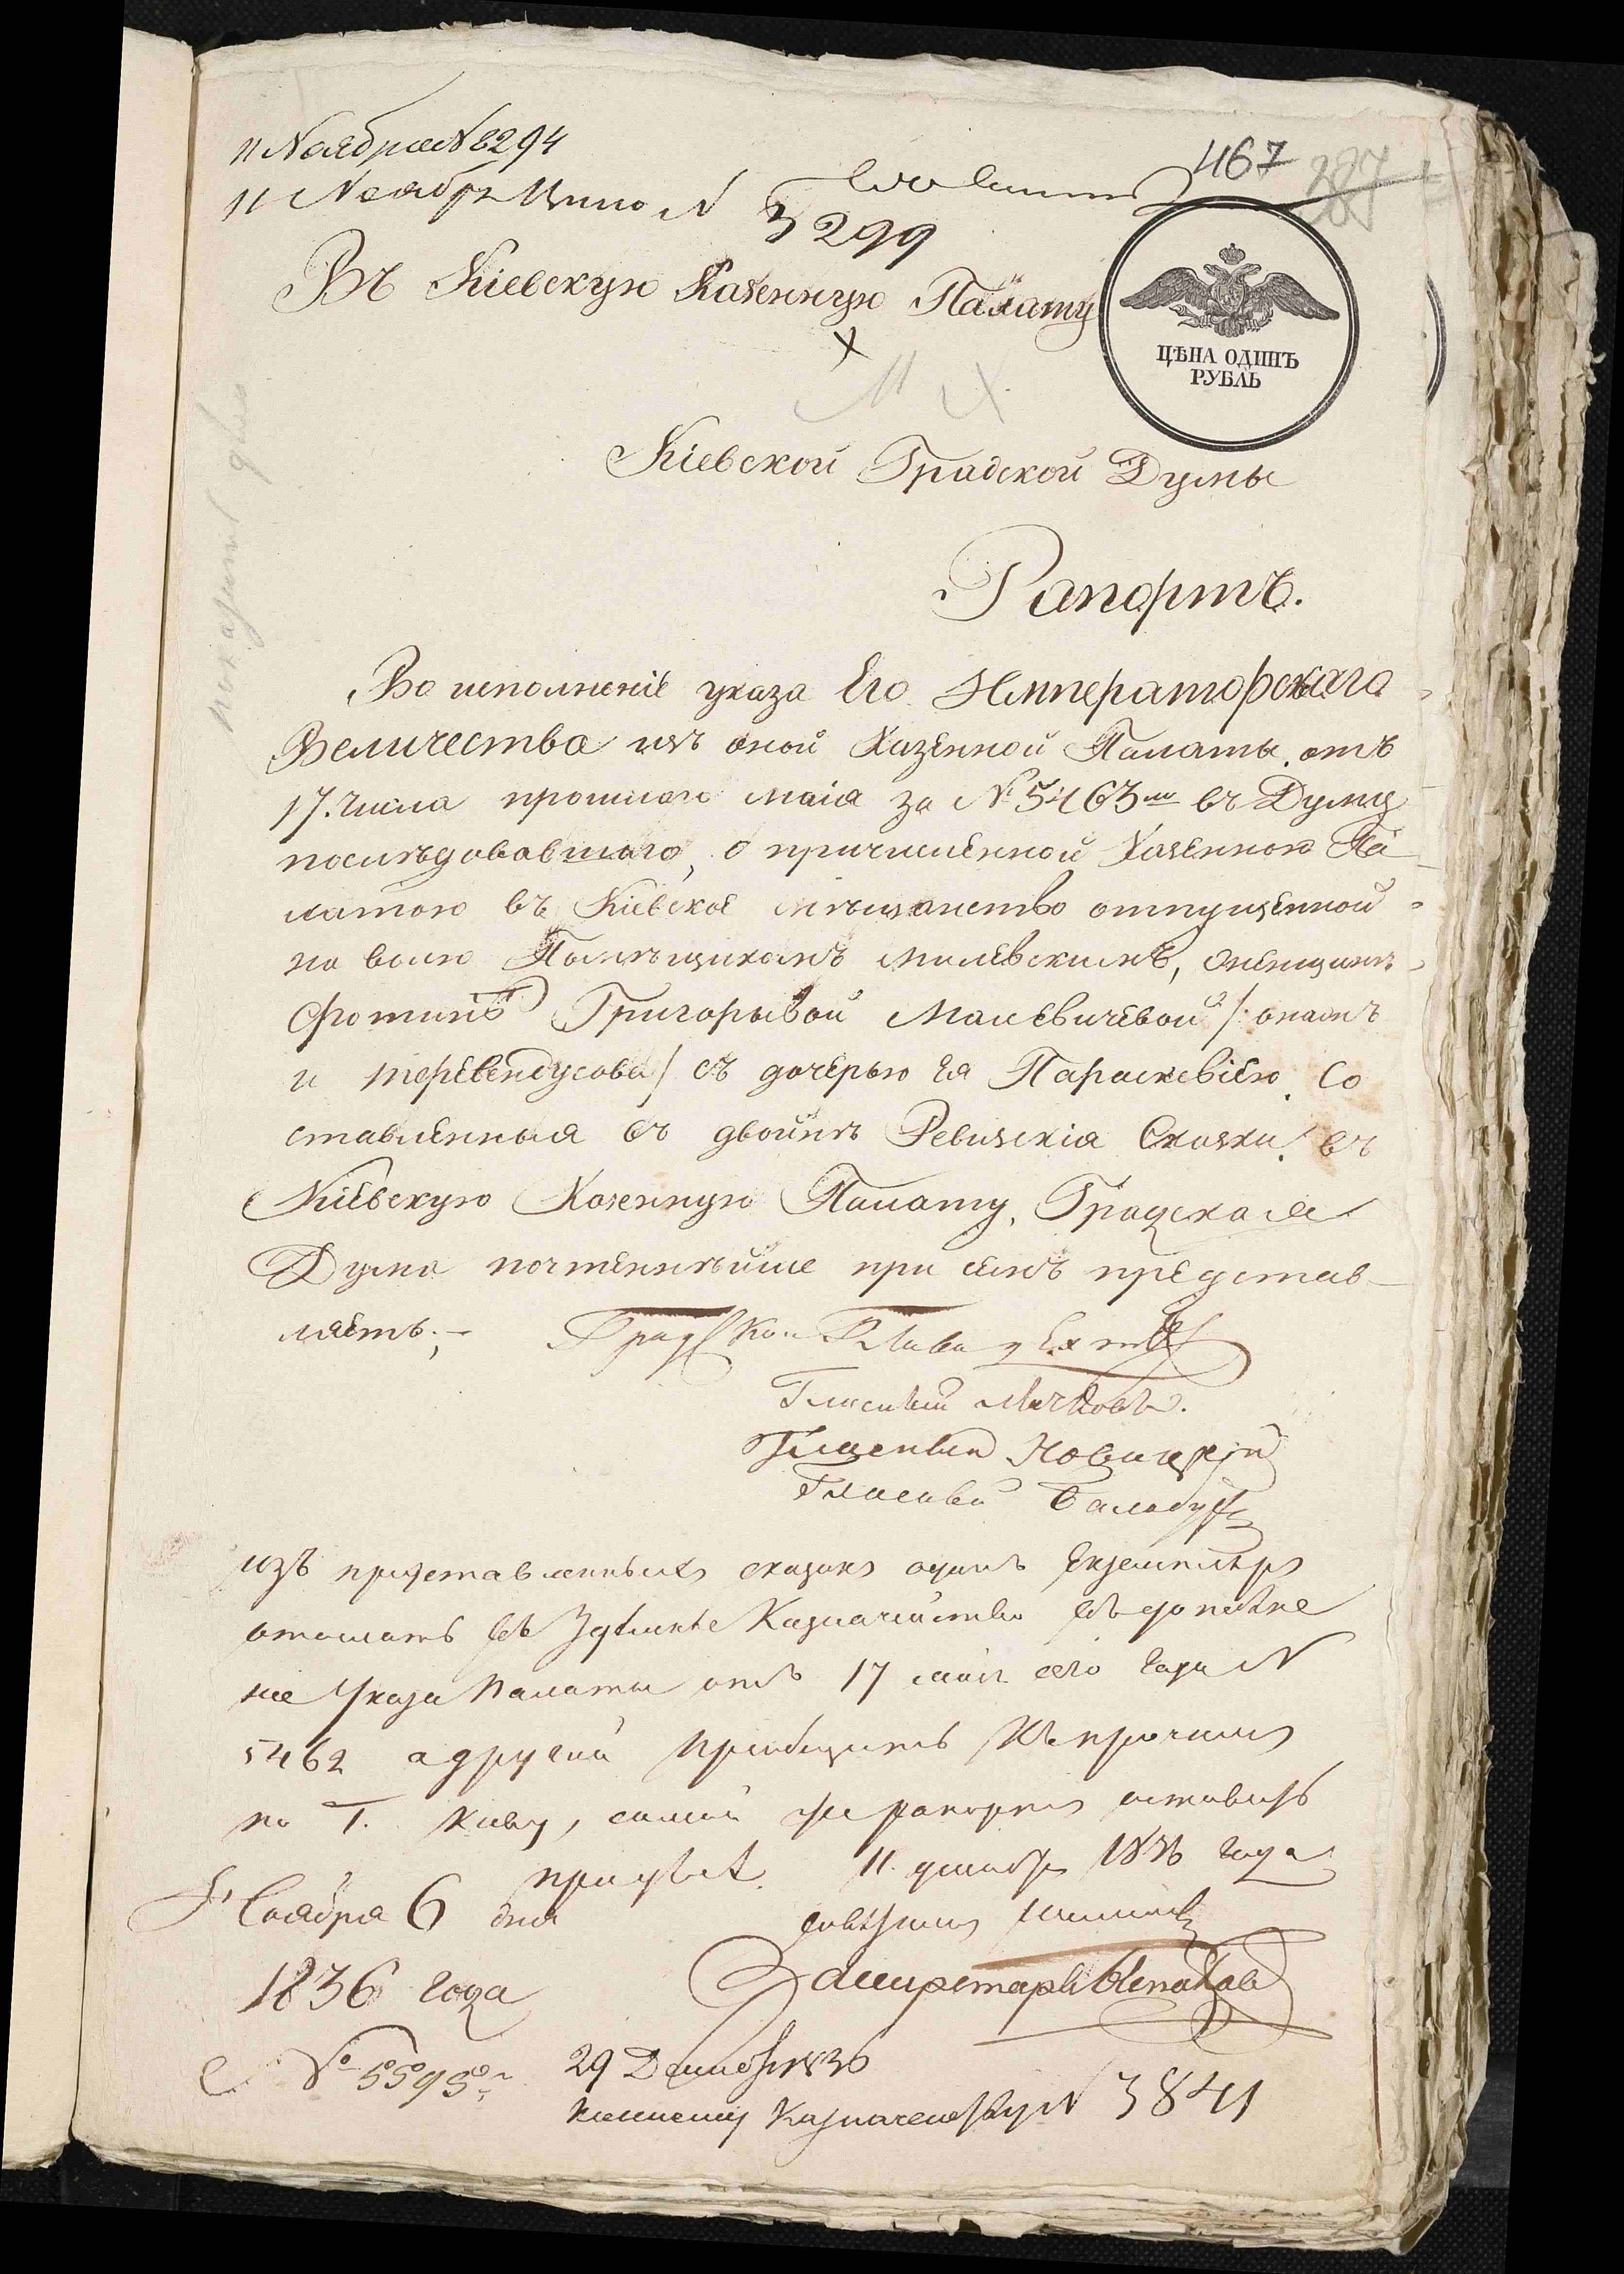 11 Ноября № 8294
467
387
11 Ноябр № 3299
Въ Кіевскую Казенную Палату
ЦѢНА ОДИНЪ
РУБЛЬ
Кіевской Градской Думы
Рапортъ.
Во исполненіе указа Его Императорскаго
Величества изъ оной Казенной Палаты отъ
17. числа прошлаго маія за № 5463мъ въ Думу
послѣдовавшаго, о причисленной Казенною Па
латою въ Кіевское мѣщанство отпущенной
на волю Помѣщикомъ Милевскимъ, женщинѣ
Фотинѣ Григорьевой Малевичевой /: онажъ
и / съ дочерью ея Параскевіею, со
ставленныя въ двойнѣ Ревизскія Сказки, въ
Кіевскую Казенную Палату, Градская
Дума почтеннѣйше при семъ представ
ляетъ.
Градской Глава
Гласный
Гласный Новицкій
Гласный Балабуха
изъ представленныхъ сказокъ одинъ Екземпляръ
отослать въ Казначейство въ дополне
ніе Указа Палаты отъ 17 маія сего года №
5462 а другой пріобщить къ прочимъ
по Г. Кіеву, самый же рапортъ оставить
при дѣлѣ. 11 декабр 1836 года
Ноября 6 дня
1836 года
№ 5595
29 Декабр 1836
Казначейству № 3841